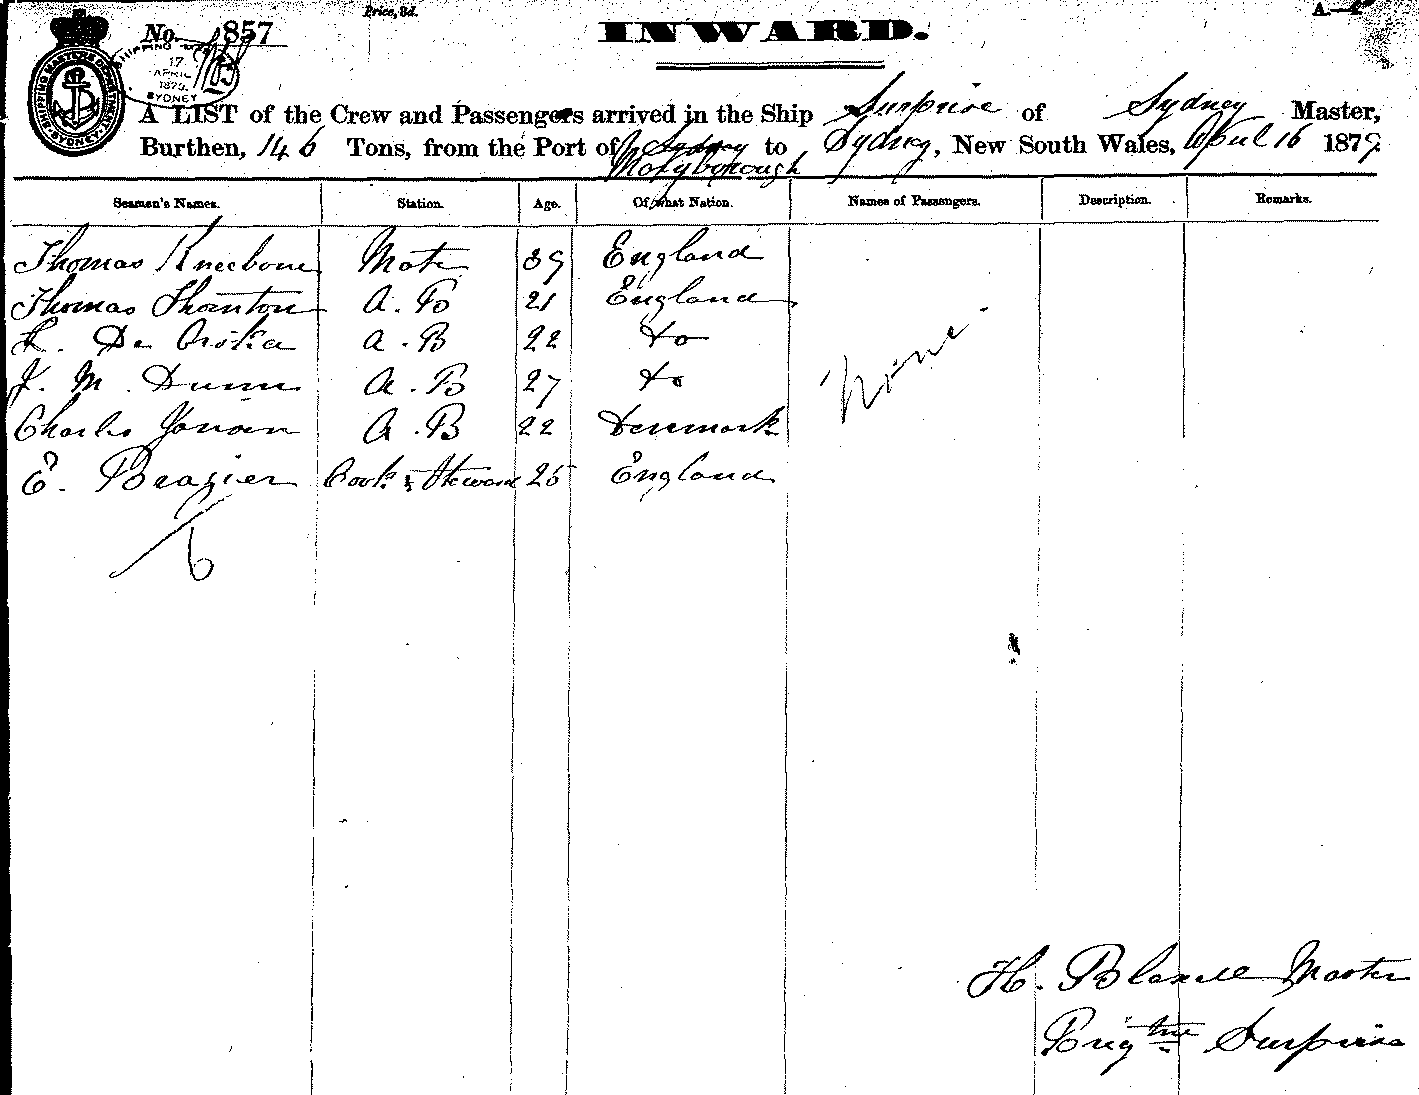 Price, 3d.
No. 857
INWARD.
SHIPPING MASTER'S OFFICE
SYDNEY
17
APRIL
1879.
SYDNEY
A LIST of the Crew and Passengers arrived in the Ship Surprise of Sydney Master,
Burthen, 146 Tons, from the Port of Sydney to Sydney, New South Wales, April 16 1879.
Maryborough
Seamen's Names. Station. Age. Of what Nation. Names of Passengers. Description. Remarks.
Thomas Kneebone Mate 39 England
Thomas Thornton A.B 21 England
De A.B 22 Do
J. M. Dunn A.B 27 Do
None
Charles A.B 22 Denmark
E. Brazier Cook & Steward 25 England
6
H. Blaxell Master
Brigtne Surprise